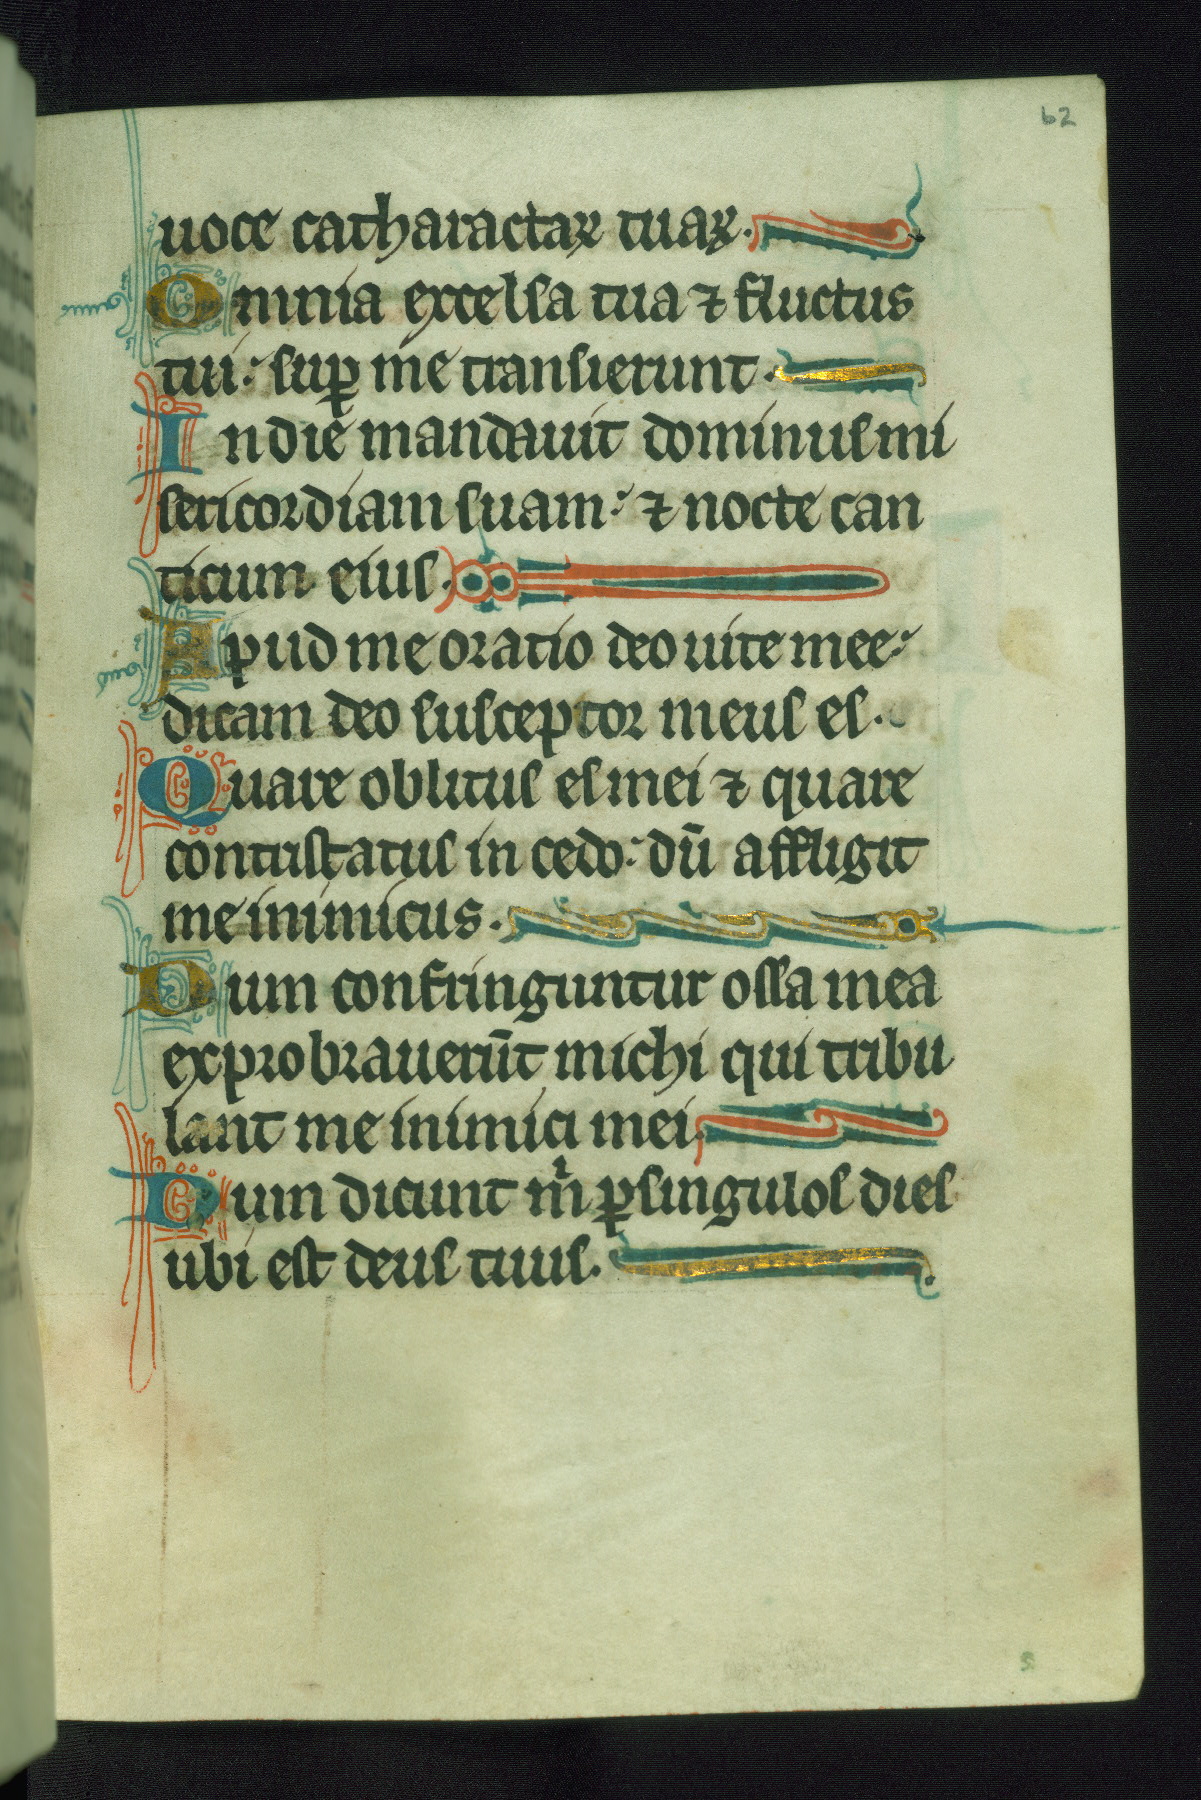 62
uoce catharactaꝝ tuaꝝ.
Omnia excelsa tua ⁊ fluctus
tui: suꝑ me transierunt.
In die mandauit dominus mi
sericordiam suam: ⁊ nocte can
ticum eius.
Apud me oratio deo uite mee:
dicam deo susceptor meus es.
Quare oblitus es mei ⁊ quare
contristatus in cedo: dū affligit
me inimicus.
Dum confringuntur ossa mea
exprobrauerūt michi qui tribu
lant me inimici mei.
Dum dicunt m̍ ꝑ singulos dies
ubi est deus tuus.